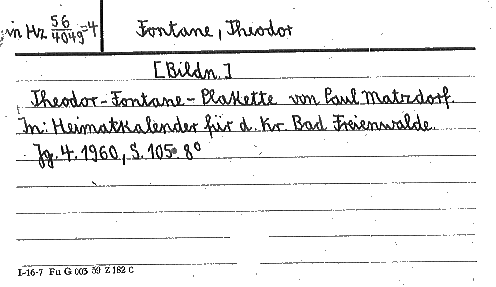 in Hz 56/4049=4 Fontane, Theodor
[Bildn.]
Theodor-Fontane-Plakette von Paul Matzdorf.
In: Heimatkalender für d. Kr. Bad Freienwalde.
Jg. 4. 1960, S. 105. 8°
I-16-7 Fu G 003 59 Z 182 C